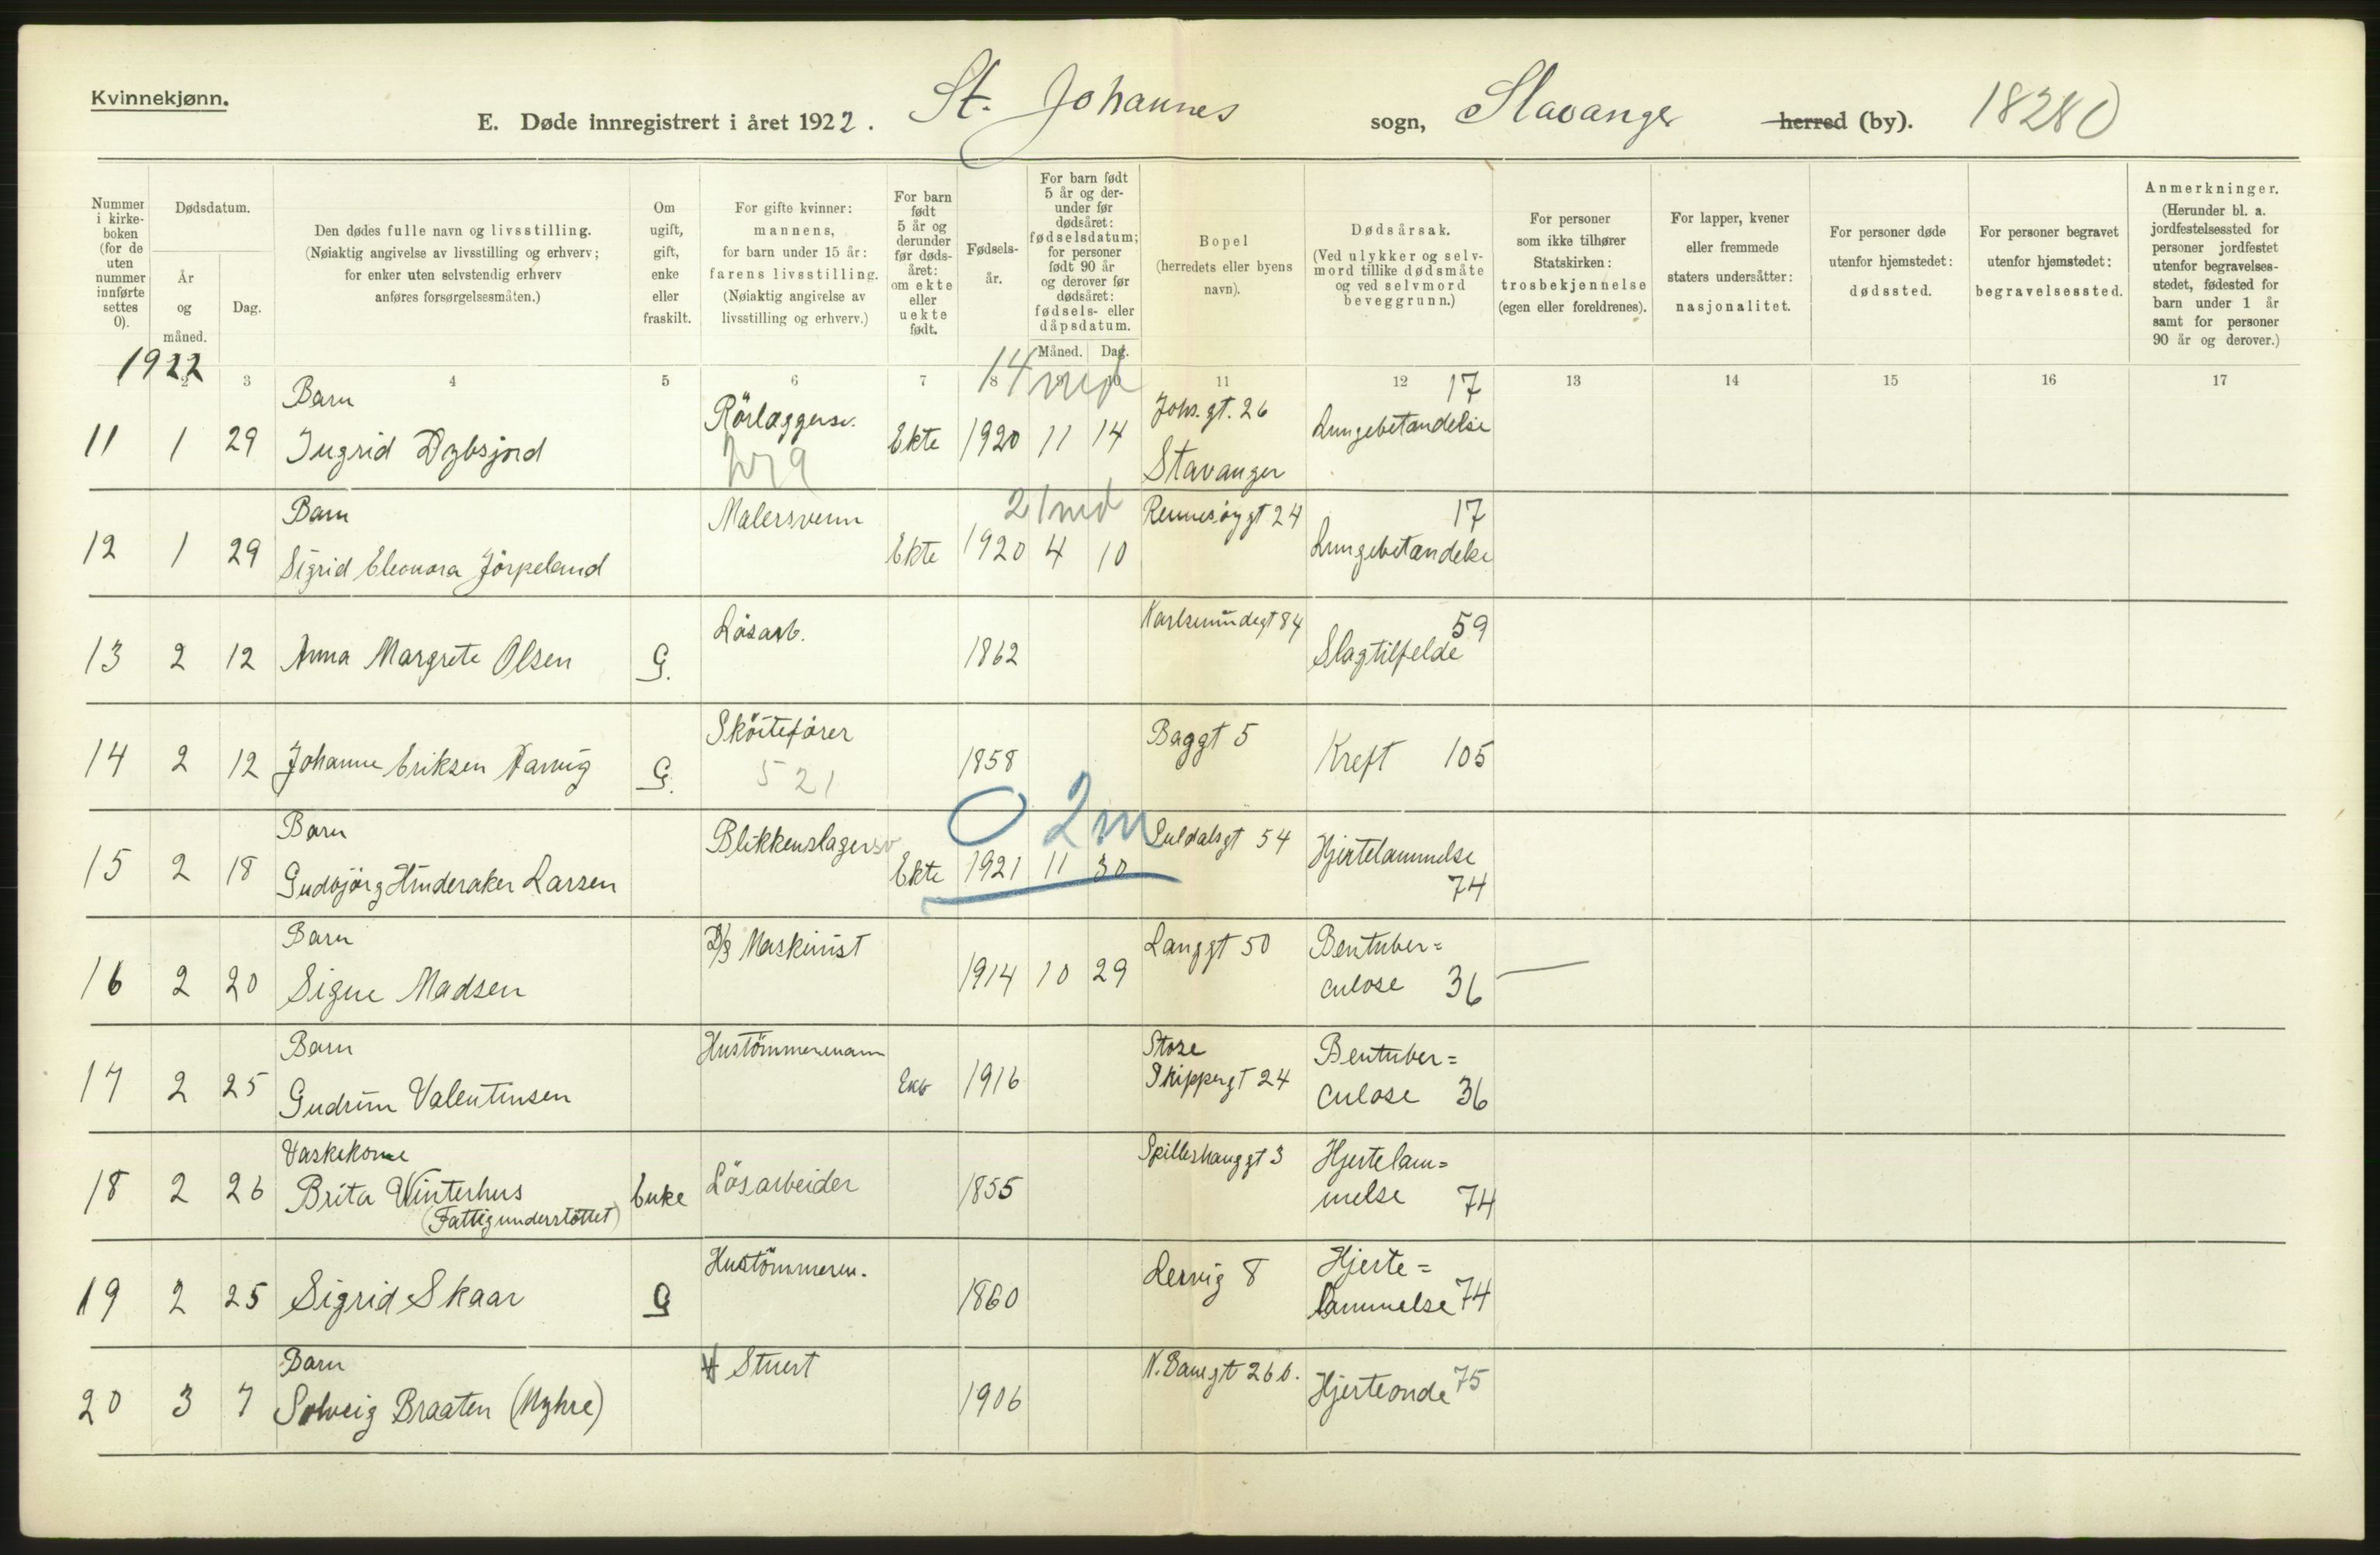 Kvinnekjønn.
E. Døde innregistrert i året 1922. St. Johannes sogn, Stavanger herred (by). 18280
Nummer i kirkeboken (for de uten nummer innførte settes 0).
Dødsdatum.
År og måned.
Dag.
Den dødes fulle navn og livsstilling. (Nøiaktig angivelse av livsstilling og erhverv; for enker uten selvstendig erhverv anføres forsørgelsesmåten.)
Om ugift, gift, enke eller fraskilt.
For gifte kvinner: mannens, for barn under 15 år: farens livsstilling. (Nøiaktig angivelse av livsstilling og erhverv.)
For barn født 5 år og derunder før dødsåret: om ekte eller uekte født.
Fødselsår.
For barn født 5 år og derunder før dødsåret: fødselsdatum; for personer født 90 år og derover før dødsåret: fødsels- eller dåpsdatum.
Måned. Dag.
Bopel (herredets eller byens navn).
Dødsårsak. (Ved ulykker og selvmord tillike dødsmåte og ved selvmord beveggrunn.)
For personer som ikke tilhører Statskirken: trosbekjennelse (egen eller foreldrenes).
For lapper, kvener eller fremmede staters undersåtter: nasjonalitet.
For personer døde utenfor hjemstedet: dødssted.
For personer begravet utenfor hjemstedet: begravelsessted.
Anmerkninger. (Herunder bl. a. jordfestelsessted for personer jordfestet utenfor begravelsesstedet, fødested for barn under 1 år samt for personer 90 år og derover.)
1 2 3 4 5 6 7 8 9 10 11 12 13 14 15 16 17
1922
Barn Rörlæggersv. 14 md Johs.gt. 26 17
11 1 29 Ingrid Dybsjord Ekte 1920 11 14 Stavanger Lungebetændelse
Barn Malersvenn 21 md Rennesöygt 24 17
12 1 29 Sigrid Eleonora Jörpeland Ekte 1920 4 10 Lungebetændelse
Lösarb. Karlsmindegt 84 59
13 2 12 Anna Margrete Olsen G. 1862 Slagtilfelde
Sköiteförer Baggt 5
14 2 12 Johanne Eriksen G. 521 1858 Kreft 105
Barn Blikkenslagersv 0 2m Suldalsgt 54
15 2 18 Gudbjörg Hinderaker Larsen Ekte 1921 11 30 Hjertelammelse 74
Barn D/S Maskinist Langgt 50 Bentuber=
16 2 20 Signe Madsen 1914 10 29 culose 36
Barn Hustömmermann Store Bentuber=
17 2 25 Gudrun Valentinsen Ekte 1916 Skippergt 24 culose 36
Vaskekone Spilderhauggt 3 Hjertelam=
18 2 26 Brita Winterhus Enke Lösarbeider 1855 melse 74
(Fattigunderstöttet)
Hustömmerm. Lervig 8 Hjerte=
19 2 25 Sigrid Skaar G 1860 lammelse 74
Barn Stuert N. Banegt 26 b.
20 3 7 Solveig Braaten (Myhre) 1906 Hjerteonde 75